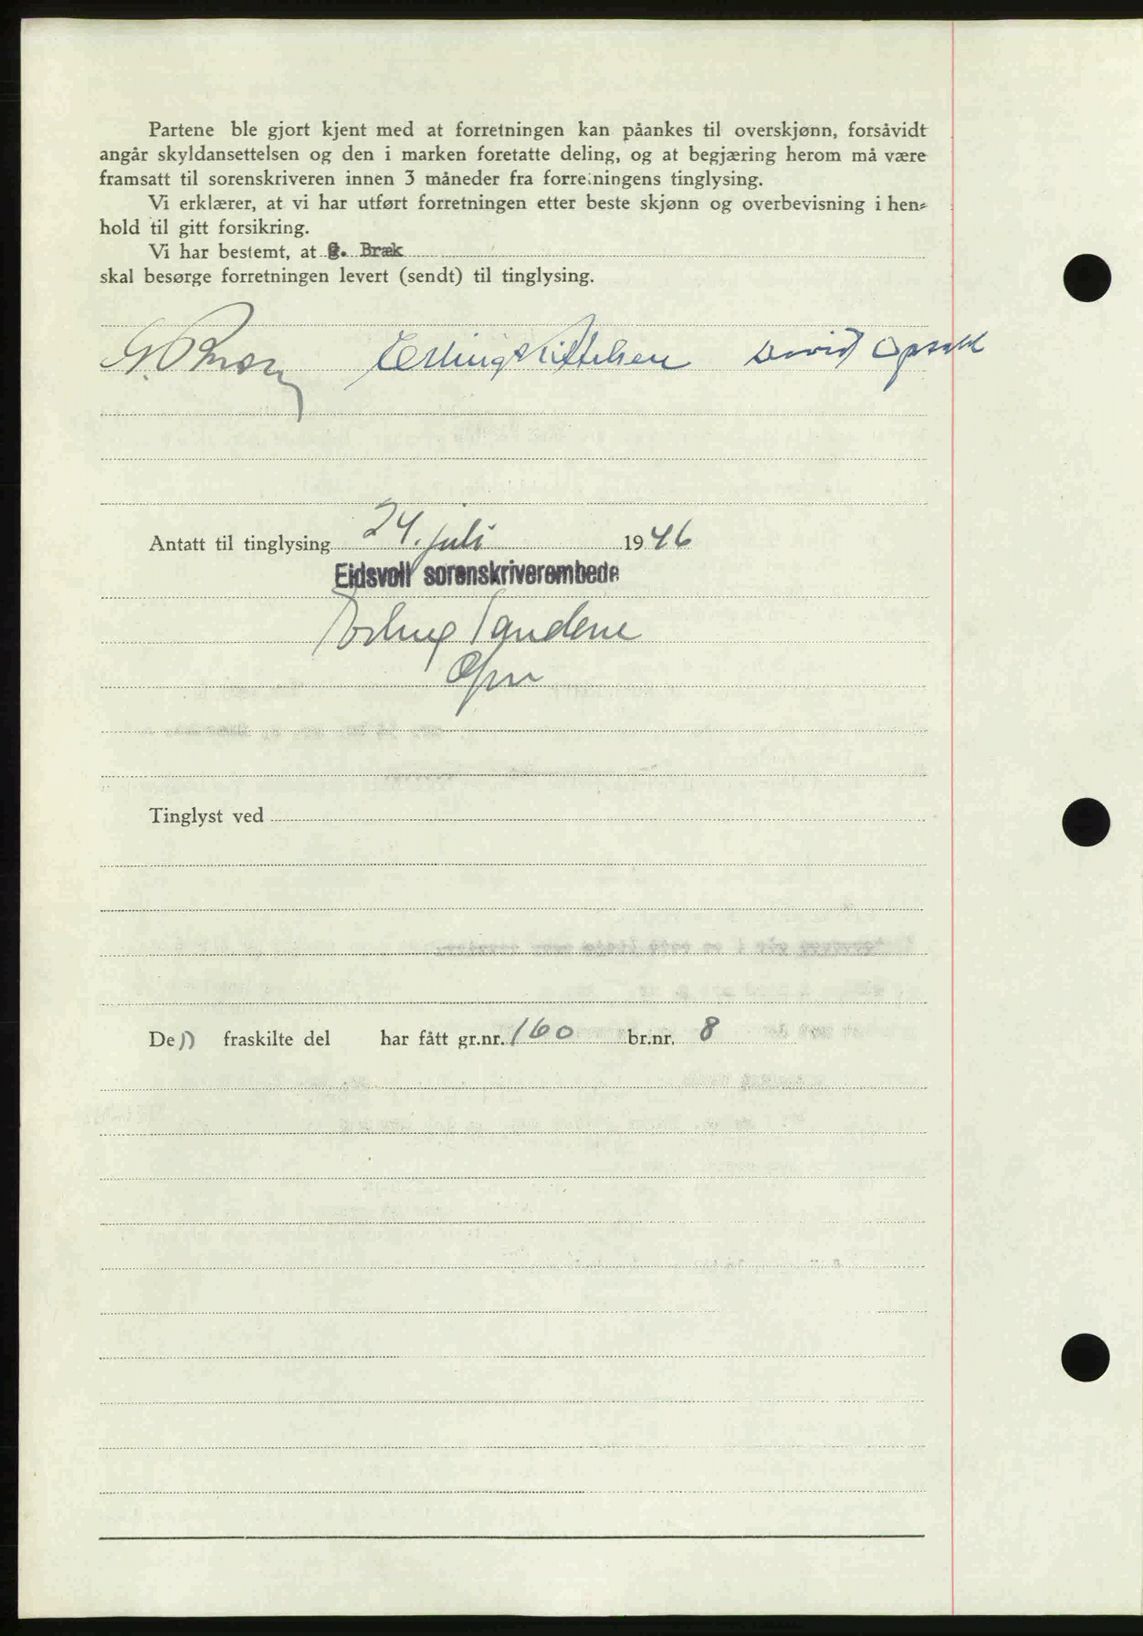 Partene ble gjort kjent med at forretningen kan påankes til overskjønn, forsåvidt
angår skyldansettelsen og den i marken foretatte deling, og at begjæring herom må være
framsatt til sorenskriveren innen 3 måneder fra forretningens tinglysing.
Vi erklærer, at vi har utført forretningen etter beste skjønn og overbevisning i hen-
hold til gitt forsikring.
Vi har bestemt, at G. Bræk
skal besørge forretningen levert (sendt) til tinglysing.
Erling Kittelsen David Opsahl
Antatt til tinglysing 24. juli 1946
Eidsvoll sorenskriverembede
Tinglyst ved
Den fraskilte del har fått gr.nr. 160 br.nr. 8